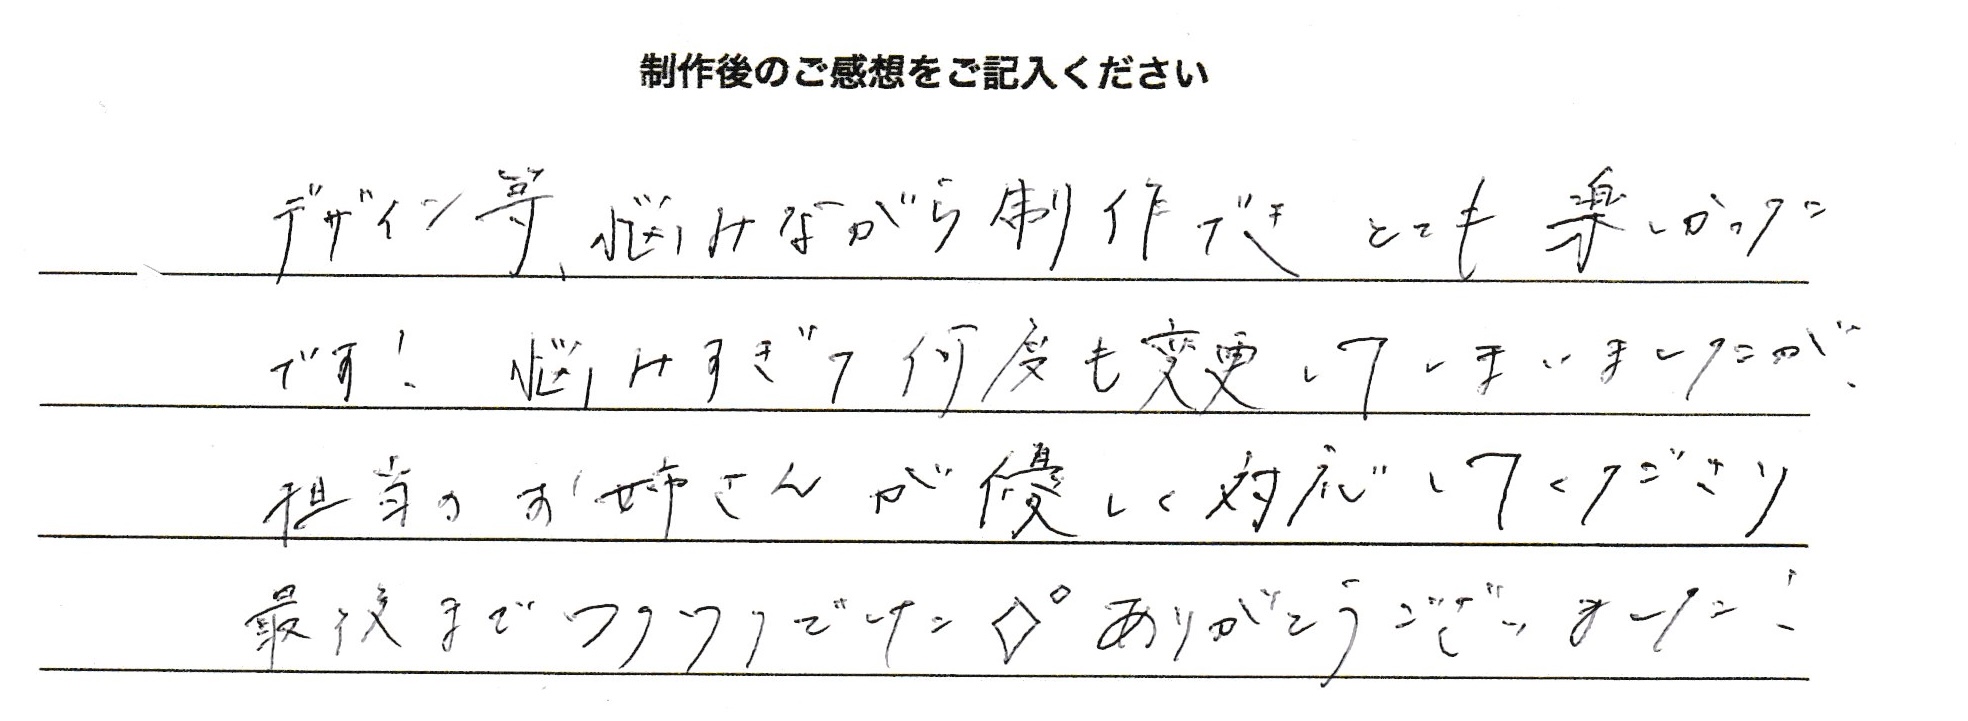 制作後のご感想をご記入ください
デザイン等、悩みながら制作でき とても楽しかった
です! 悩みすぎて何度も変更してしまいましたが、
担当のお姉さんが優しく対応してくださり
最後までワクワクでした◇° ありがとうございました!